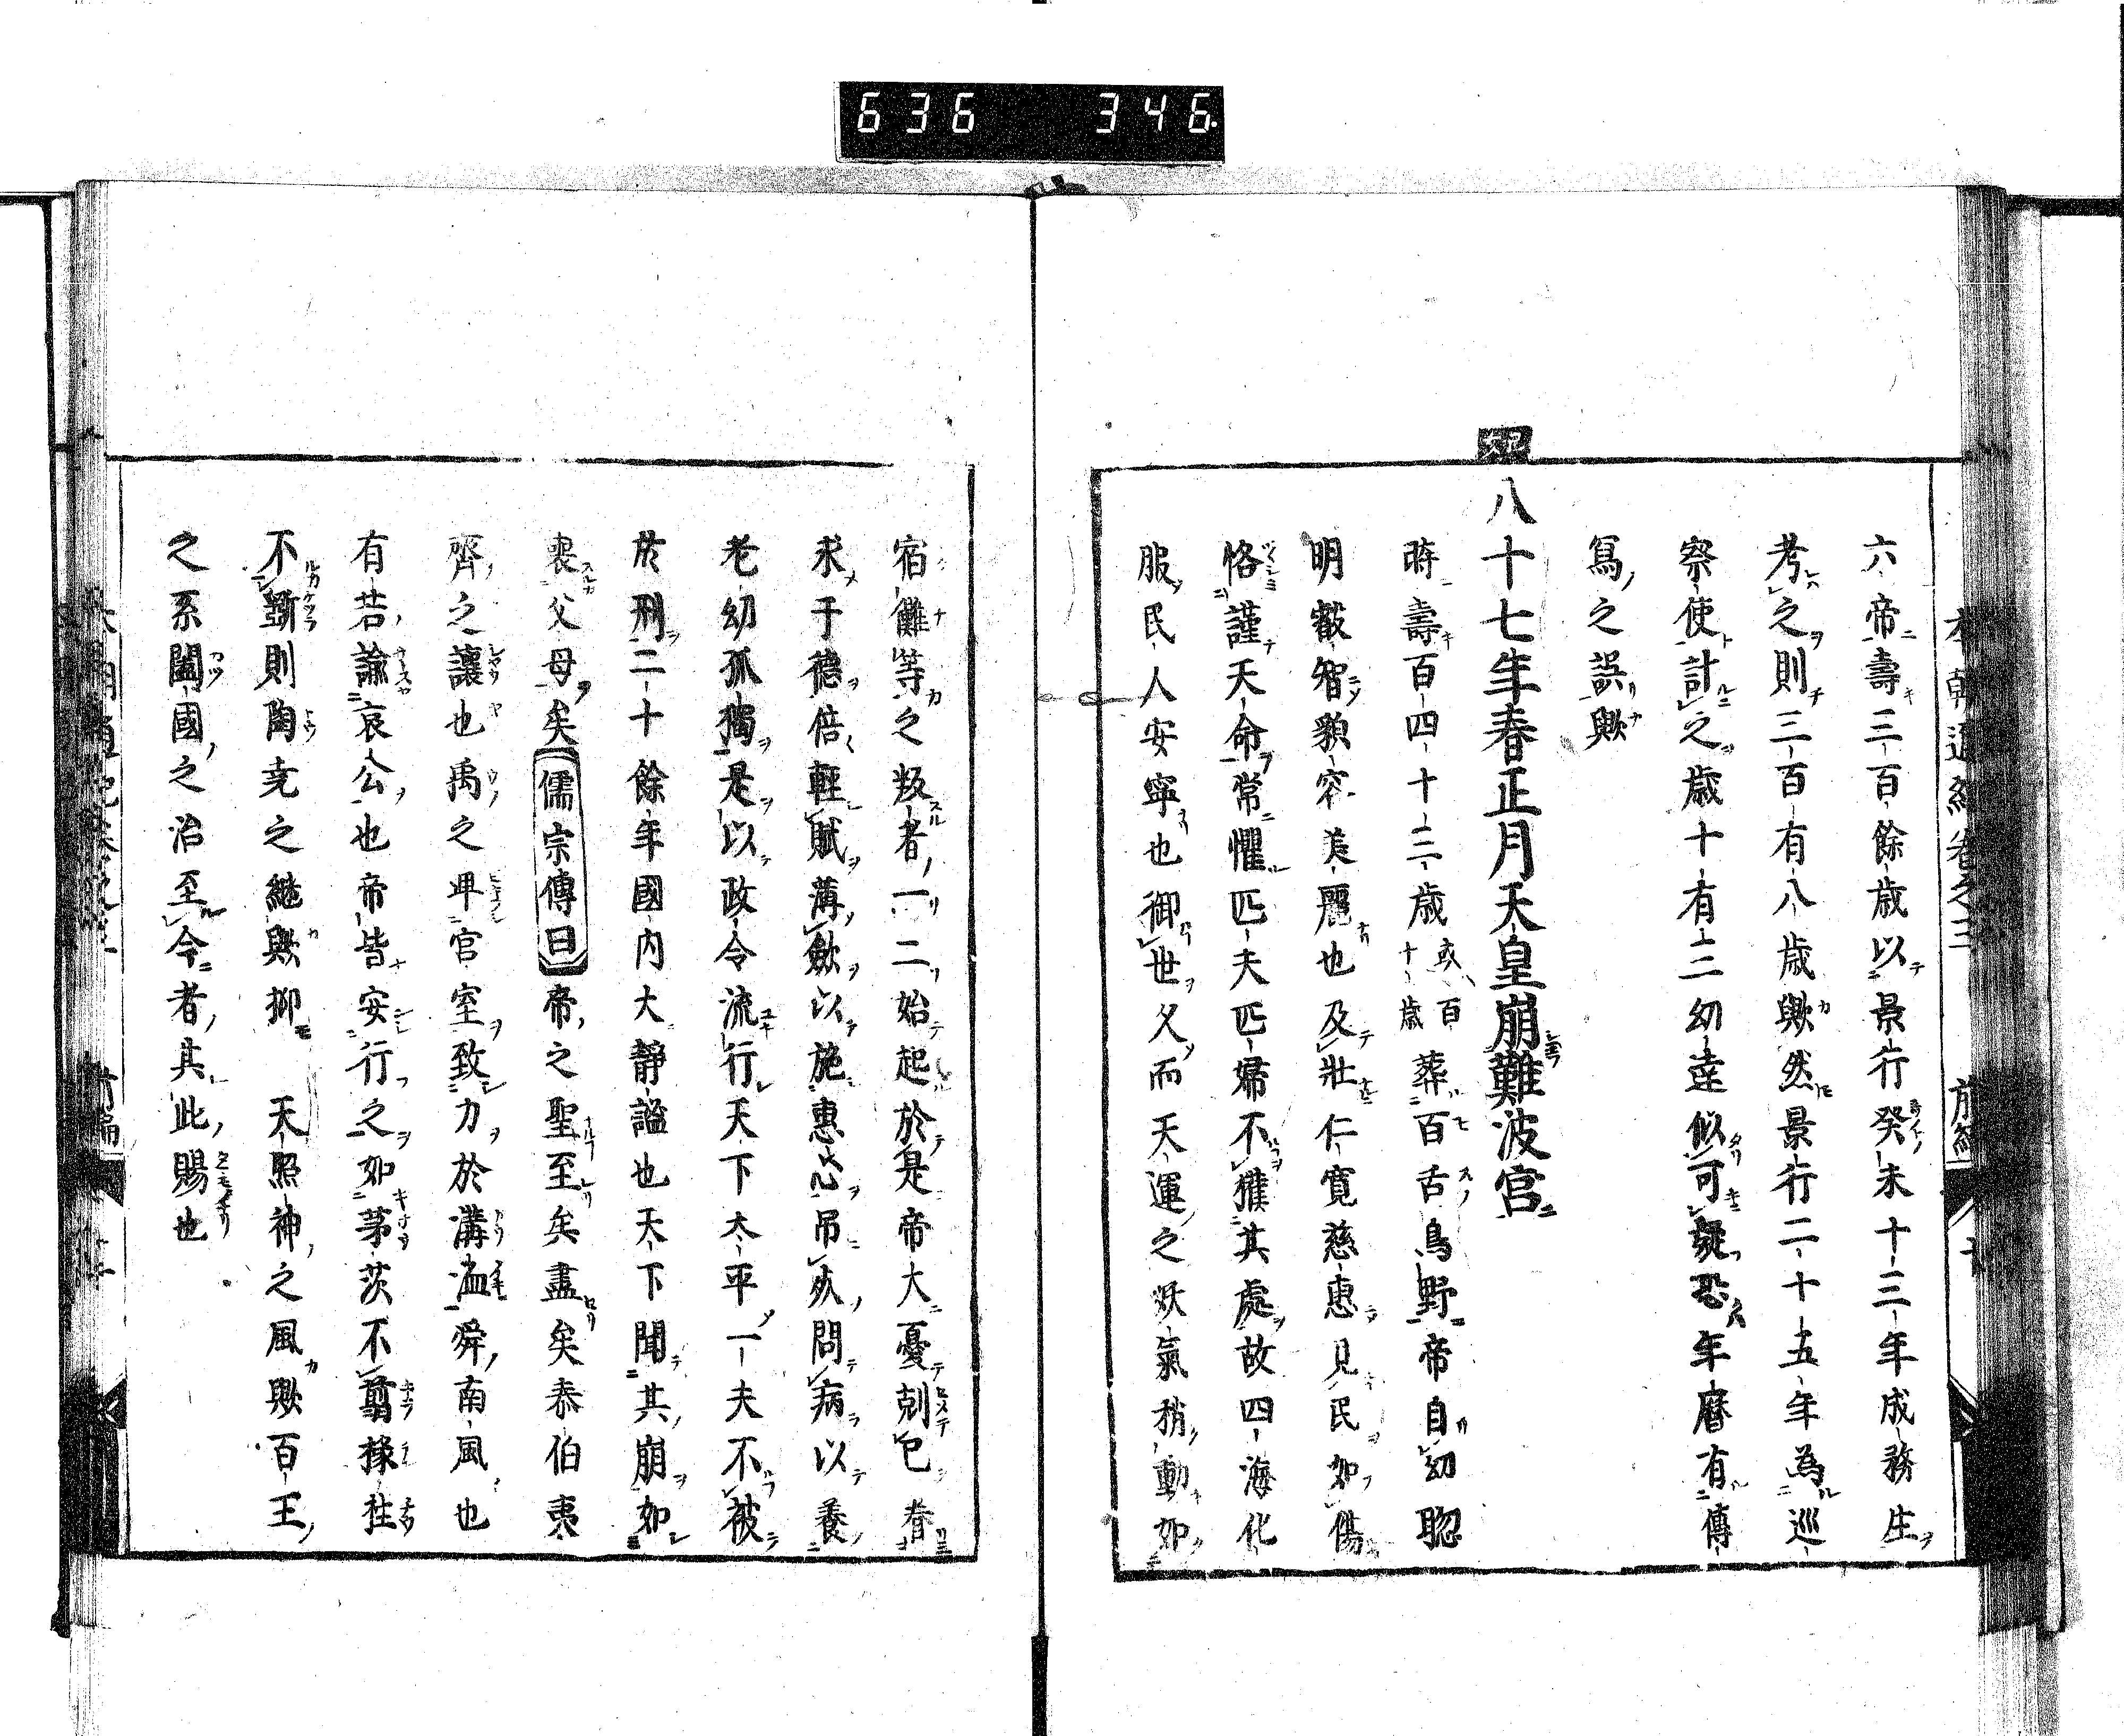 636 346
六帝壽三百餘歳以景行癸未十三年成務生
考之則三百有八歳歟然景行二十五年為巡
察使計之歳十有二幼達似可疑恐年暦有傳
寫之誤歟
八十七年春正月天皇崩難波宮
時壽百四十三歳或百十歳葬百舌鳥野帝自幼聡
明叡智貌容美麗也及壯仁寛慈惠見民如傷
恪謹天命常懼匹夫匹婦不獲其處故四海化
服民人安寧也御世久而天運之妖氣稍動如
宿儺等之叛者一二始起於是帝大憂剋己眷
求于德倍輕賦薄歛以施惠心吊死問病以養
老幼孤獨是以政令流行天下太平一夫不被
於刑二十餘年國内大靜謐也天下聞其崩如
喪父母矣儒宗傳曰帝之聖至矣盡矣泰伯夷
齊之讓也禹之卑宮室致力於溝洫舜南風也
有若諭哀公也帝皆安行之如茅茨不翦椽柱
不斵則陶尭之継歟抑 天照神之風歟百王
之系闔國之治至今者其此賜也